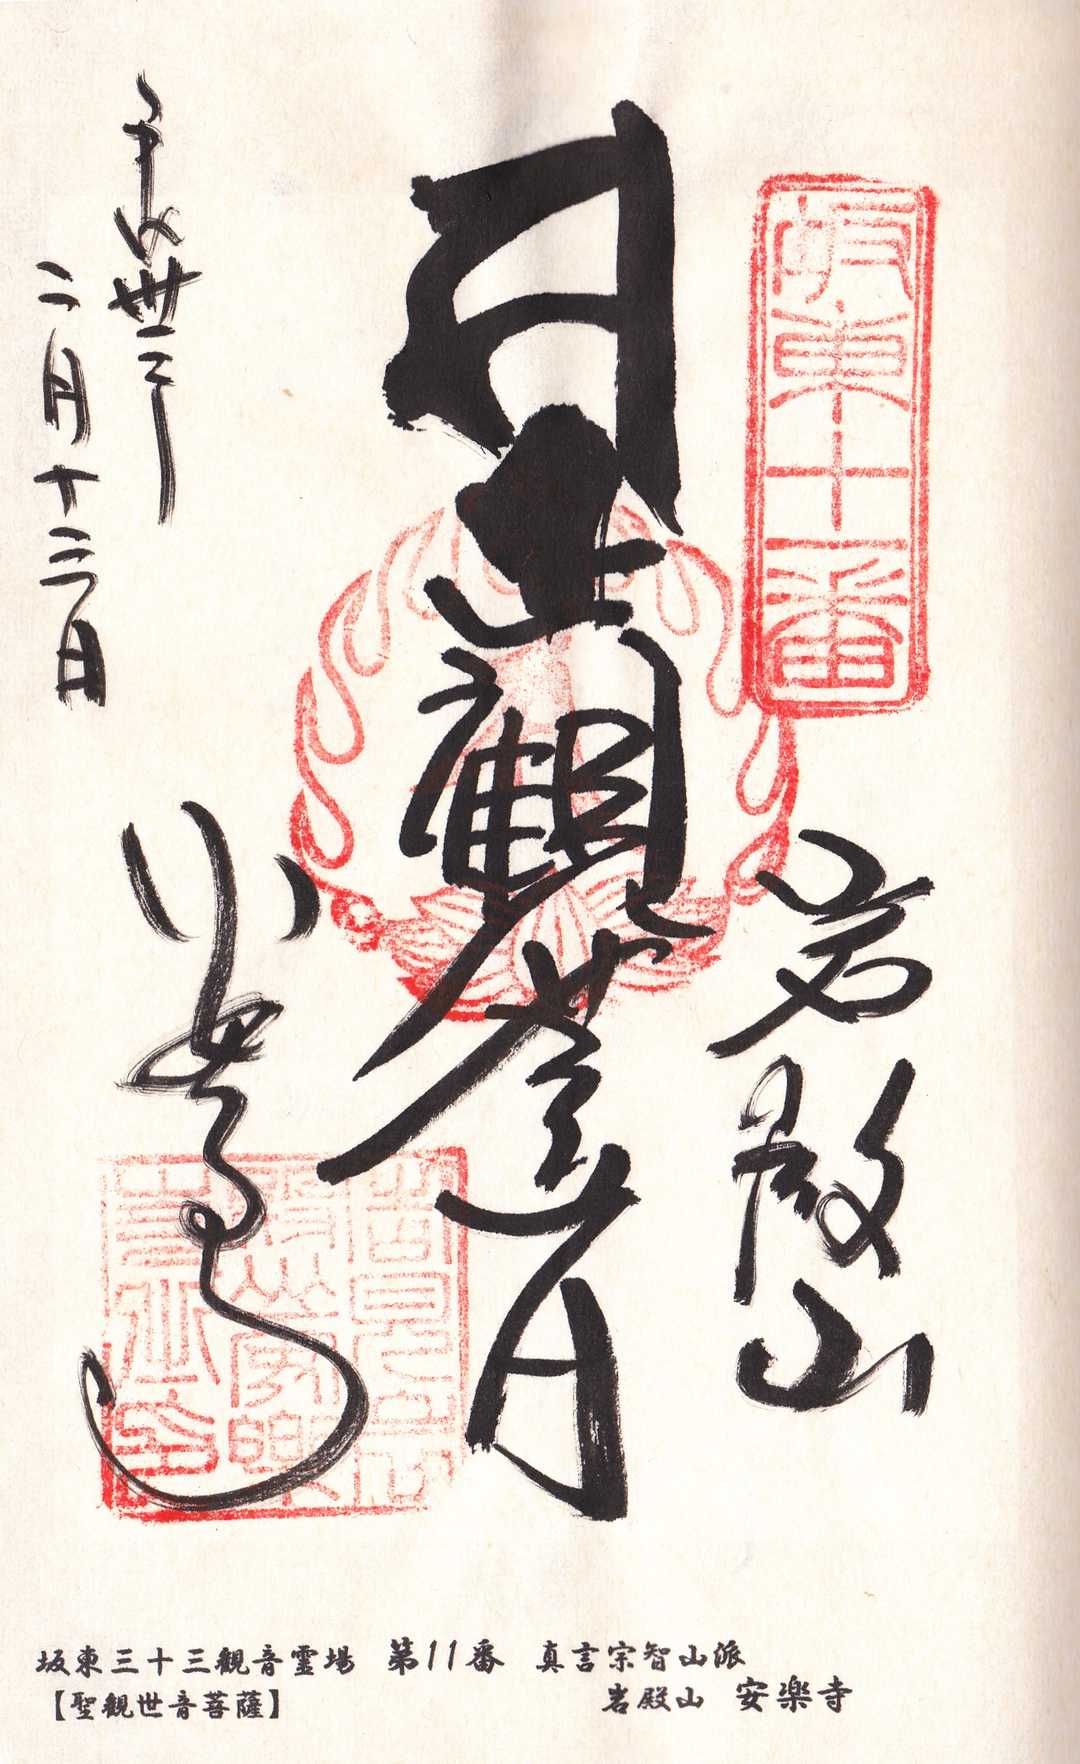 坂東十一番
岩殿山
聖観世音
平成卅一年
二月十三日
坂東三十三観音霊場 第11番 真言宗智山派
【聖観世音菩薩】 岩殿山 安楽寺